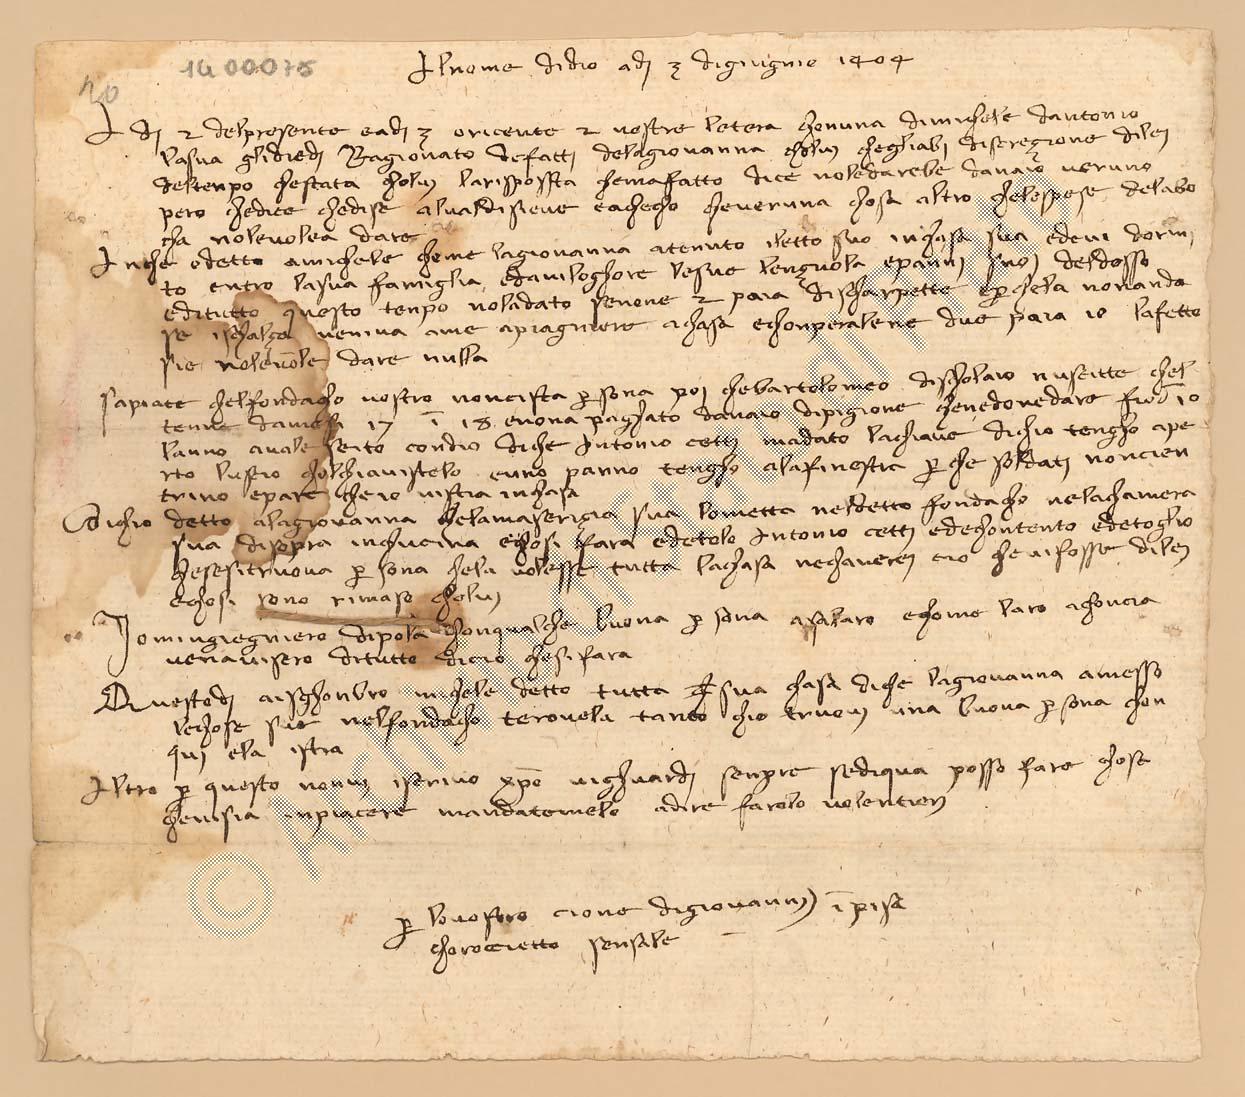 1400075
20
Al nome di dio adi 3 di giugnio 1404
I di 2 del presente e adi 3 o ricente 2 vostre letera chon una di michele dantonio
la sua gli diedi Ragionato de fatti dela giovanna cholui che gli abi discregione di lei
del tenpo chestata cholui la rispossta chema fatto dice nole darebe danaio veruno
pero chedice chedise al valdisieve e a checho che veruna chosa altro chelespese delabo
cha nole volea dare
Inche o detto a michele chome la giovanna a tenuto iletto suo in chasa sua e devi dormi
to entro la sua famiglia e davi loghore le sue lenzuola e panni suoi deldosso
e di tutto questo tenpo nola dato senone 2 paia di scharpette per chela non anda
se ischalza veniva a me a piagniere a chasa e chonperalene due paia io lafetto
sie nole vole dare nulla
sapiate chel fondacho vostro non cista persona poi che bartolomeo di scholaio nuscitte chel
tenne da mesi 17 i 18 e nona paghato danaio di pigione che ne dovea dare fior 10
lanno avale sento condio diche Antonio cetti madato la chiave dichio tengho ape
rto luscio chol chiavistelo e uno panno tengho ala finestra per che soldati non cien
trino e pare che io vi stia in chasa
Odichio detto ala giovanna chela maserizia sua lo metta nel detto fondacho nela chamera
sua di sopra in chucina e chosi fara e detolo Antonio cetti ed e chontento e detoglio
chese si truova persona chela volesse tutta la chasa ne chaverei cio che vi fosse di lei
e chosi sono rimaso cholui
Io mingiegniero di pola chon qualche buona persona a salaro e chome laro achoncia
ve ne avisero di tutto dicio che si fara
Questo di a isghonbro michele detto tutta sua chasa diche la giovanna a messo
le chose sue nel fondacho terovela tanto chio truovi una buona persona chon
qui ela istia
Altro per questo non vi iscrivo xpo vi ghuardi senpre se di qua posso fare chosa
che vi sia in piacere mandatemelo a dire farolo volentieri
per lo vostro cione di giovanni i pisa
chorocietto sensale
© ARCHIVIO DI STATO DI PRATO